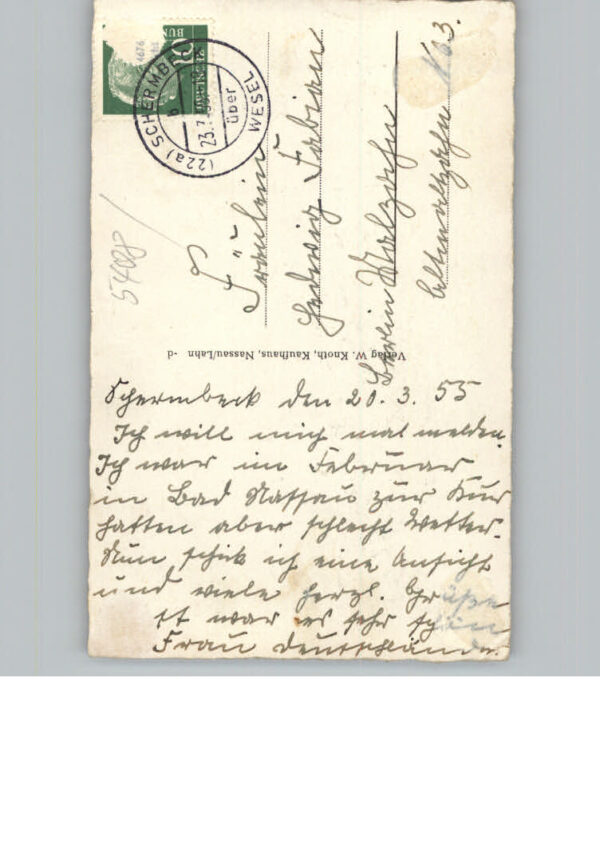 (22a) SCHERMB
b
23.7
über
WESEL
BUN
10
5408
Fräulein
Hedwig Fabian
Berlin
163.
Verlag W. Knoth, Kaufhaus, Nassau/Lahn -d
Schermbeck den 20.3.55
Ich will mich mal melden.
Ich war im Februar
in Bad Nassau zur Kur
hatten aber schlecht Wetter.
Nun schik ich eine Ansicht
und viele herzl. Grüße
Es war es sehr schön
Frau Deutschländer.